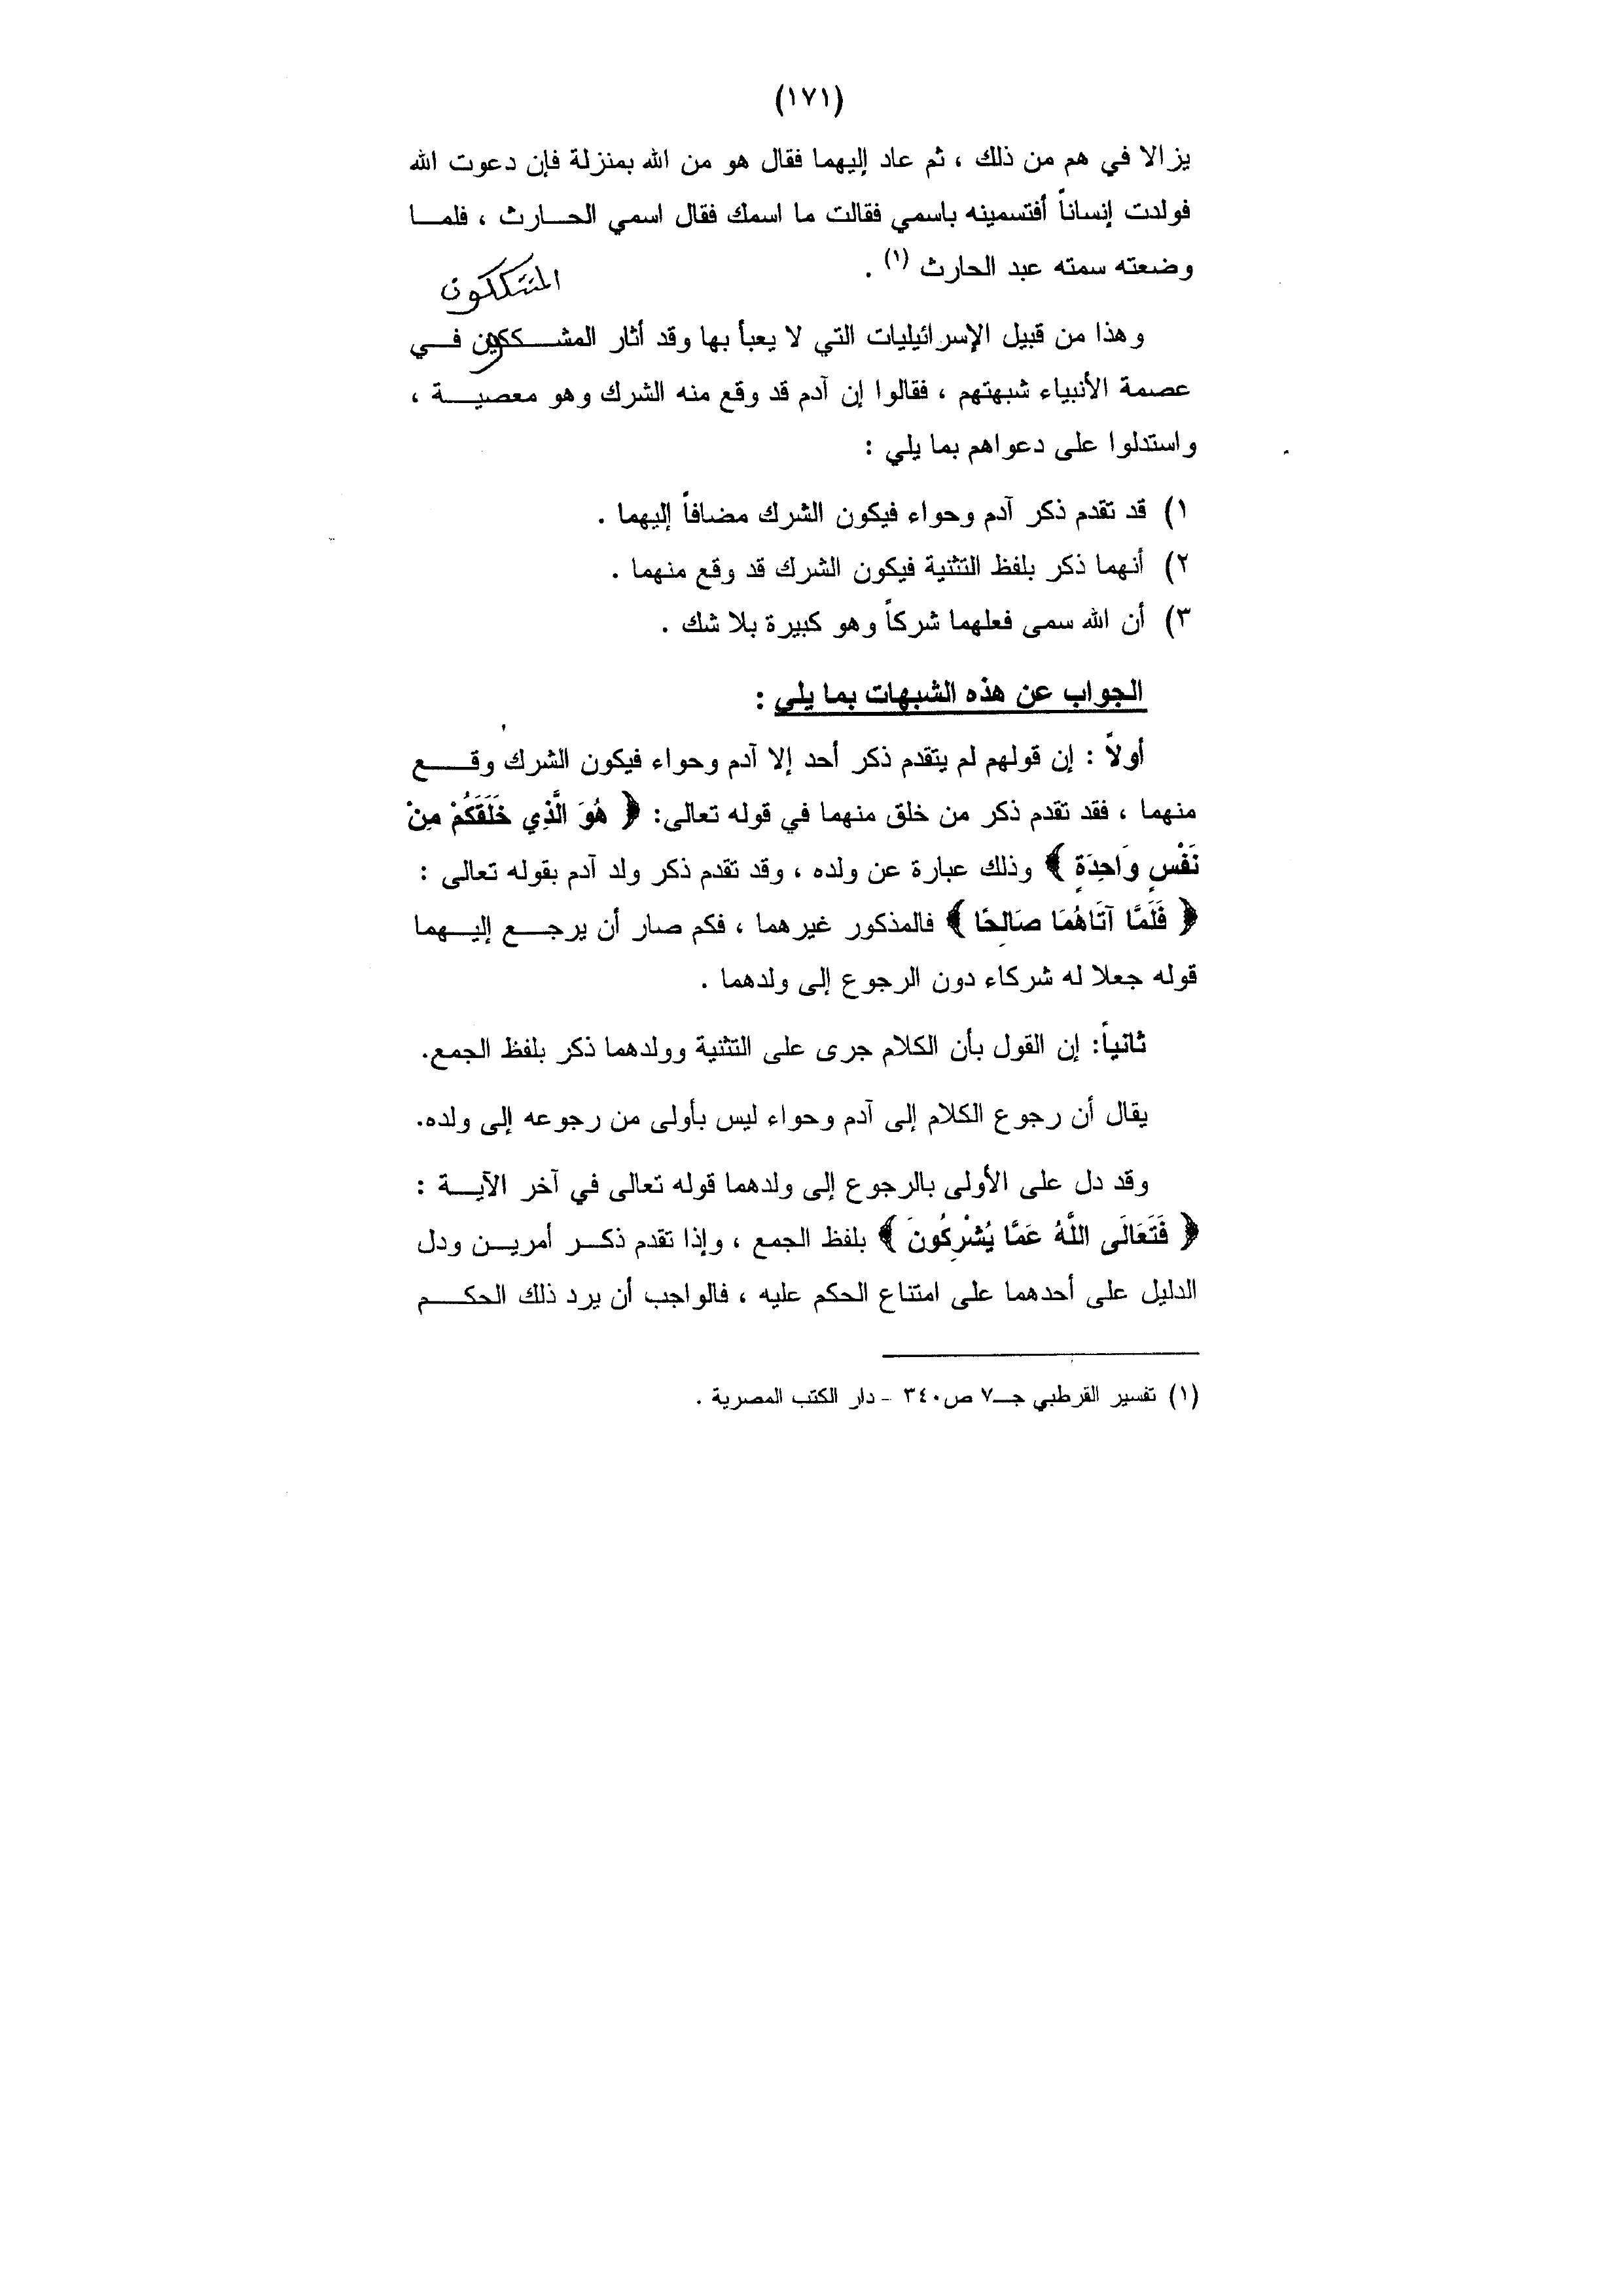 (١٧١)
يزالا في هم من ذلك ، ثم عاد إليهما فقال هو من الله بمنزلة فإن دعوت الله
فولدت إنساناً أفتسمينه باسمي فقالت ما اسمك فقال اسمي الحارث ، فلما
وضعته سمته عبد الحارث (١) .
المشككون
وهذا من قبيل الإسرائيليات التي لا يعبأ بها وقد أثار المشككين في
عصمة الأنبياء شبهتهم ، فقالوا إن آدم قد وقع منه الشرك وهو معصية ،
واستدلوا على دعواهم بما يلي :
١) قد تقدم ذكر آدم وحواء فيكون الشرك مضافاً إليهما .
٢) أنهما ذكر بلفظ التثنية فيكون الشرك قد وقع منهما .
٣) أن الله سمى فعلهما شركاً وهو كبيرة بلا شك .
الجواب عن هذه الشبهات بما يلي :
أولاً : إن قولهم لم يتقدم ذكر أحد إلا آدم وحواء فيكون الشرك وقع
منهما ، فقد تقدم ذكر من خلق منهما في قوله تعالى: ﴿ هُوَ الَّذِي خَلَقَكُمْ مِنْ
نَفْسٍ وَاحِدَةٍ ﴾ وذلك عبارة عن ولده ، وقد تقدم ذكر ولد آدم بقوله تعالى :
﴿ فَلَمَّا آتَاهُمَا صَالِحًا ﴾ فالمذكور غيرهما ، فكم صار أن يرجع إليهما
قوله جعلا له شركاء دون الرجوع إلى ولدهما .
ثانياً: إن القول بأن الكلام جرى على التثنية وولدهما ذكر بلفظ الجمع.
يقال أن رجوع الكلام إلى آدم وحواء ليس بأولى من رجوعه إلى ولده.
وقد دل على الأولى بالرجوع إلى ولدهما قوله تعالى في آخر الآية :
﴿ فَتَعَالَى اللَّهُ عَمَّا يُشْرِكُونَ ﴾ بلفظ الجمع ، وإذا تقدم ذكر أمرين ودل
الدليل على أحدهما على امتناع الحكم عليه ، فالواجب أن يرد ذلك الحكم
(١) تفسير القرطبي جـ٧ ص٣٤٠ - دار الكتب المصرية .